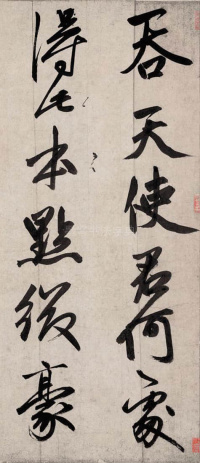 吞天使君何處
得此本點綴豪